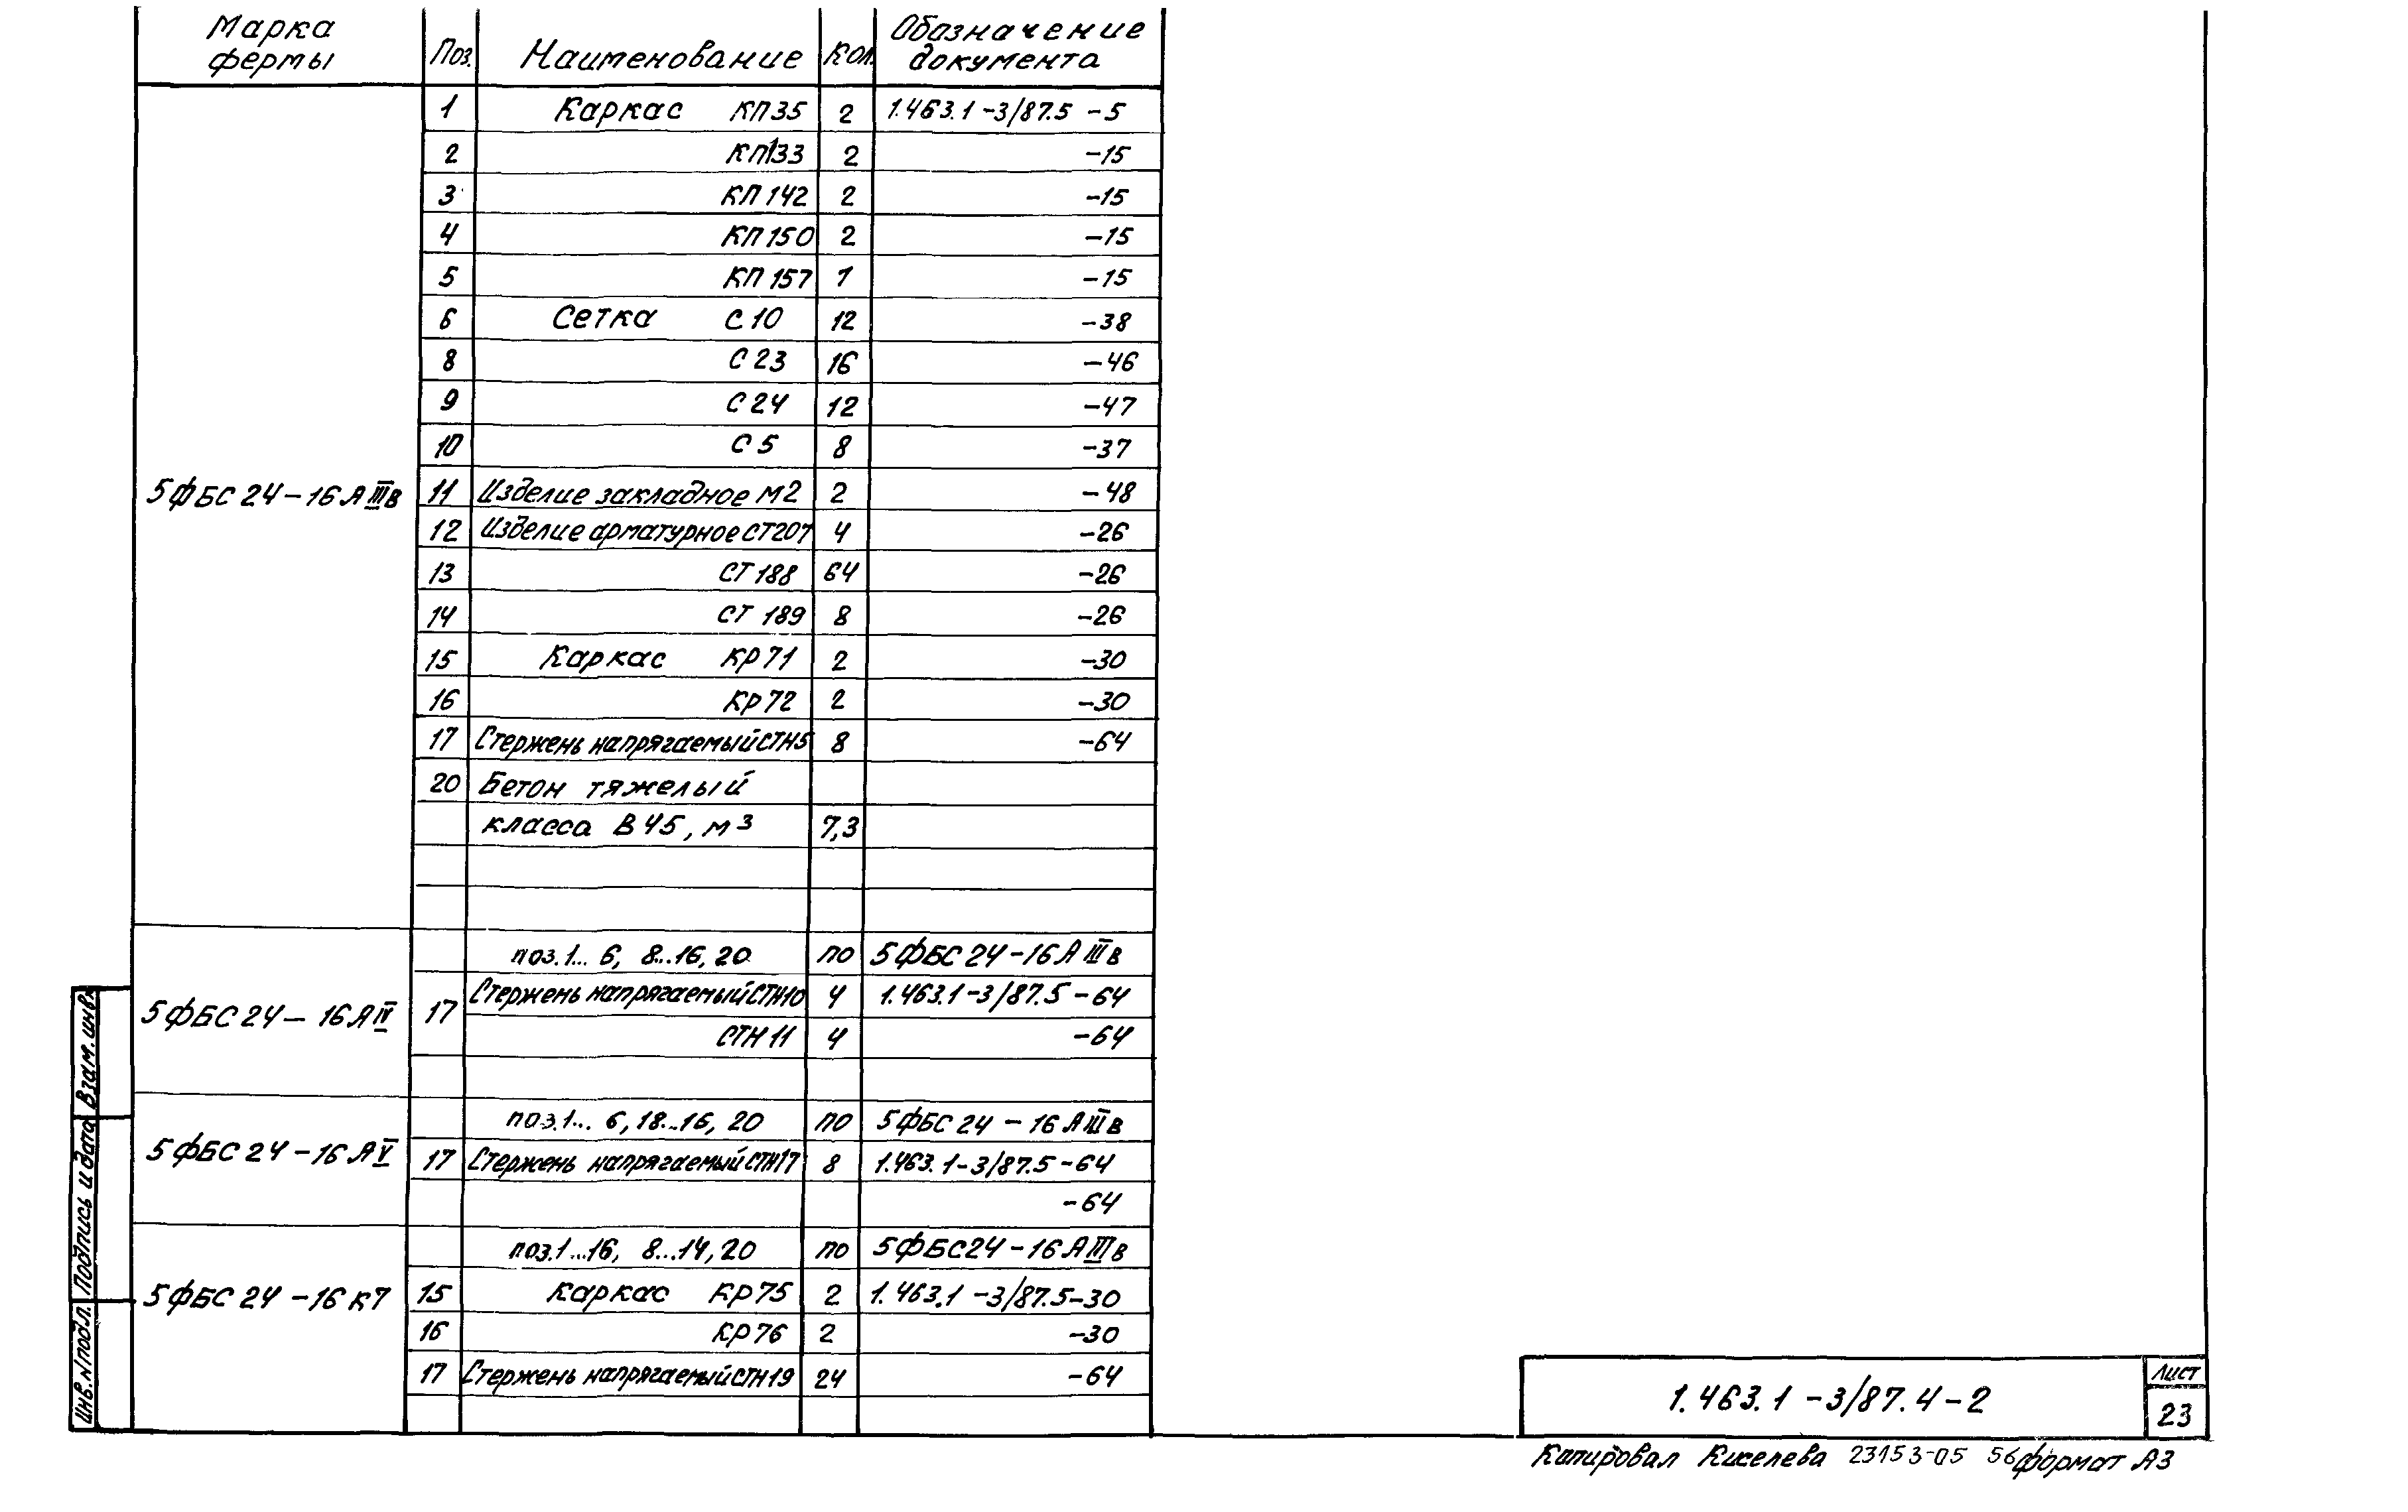 Марка фермы Поз. Наименование Кол. Обозначение документа
5ФБС 24-16 А IIIв
1 Каркас КП35 2 1.463.1-3/87.5 -5
2 КП133 2 -15
3 КП142 2 -15
4 КП150 2 -15
5 КП157 1 -15
6 Сетка С10 12 -38
8 С23 16 -46
9 С24 12 -47
10 С5 8 -37
11 Изделие закладное М2 2 -48
12 Изделие арматурное СТ207 4 -26
13 СТ188 64 -26
14 СТ 189 8 -26
15 Каркас КР71 2 -30
16 КР72 2 -30
17 Стержень напрягаемый СТН5 8 -64
20 Бетон тяжелый
класса В45, м³ 7,3
5ФБС 24 - 16 А IV
поз.1... 6, 8...16, 20 по 5ФБС 24-16 А IIIв
17 Стержень напрягаемый СТН10 4 1.463.1-3/87.5-64
СТН11 4 -64
5ФБС 24 - 16 А V
поз.1... 6, 18...16, 20 по 5ФБС 24 - 16 А IIIв
17 Стержень напрягаемый СТН17 8 1.463.1-3/87.5-64
-64
5ФБС 24 - 16 К7
поз.1...16, 8...14, 20 по 5ФБС24-16 А IIIв
15 Каркас КР75 2 1.463.1-3/87.5-30
16 КР76 2 -30
17 Стержень напрягаемый СТН19 24 -64
Инв.N подл. Подпись и дата Взам.инв.N
1.463.1-3/87.4-2
Лист
23
Копировал Киселева 23153-05 56 формат А3